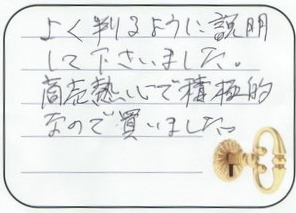 よく判るように説明
して下さいました。
商売熱心で積極的
なので買いました。